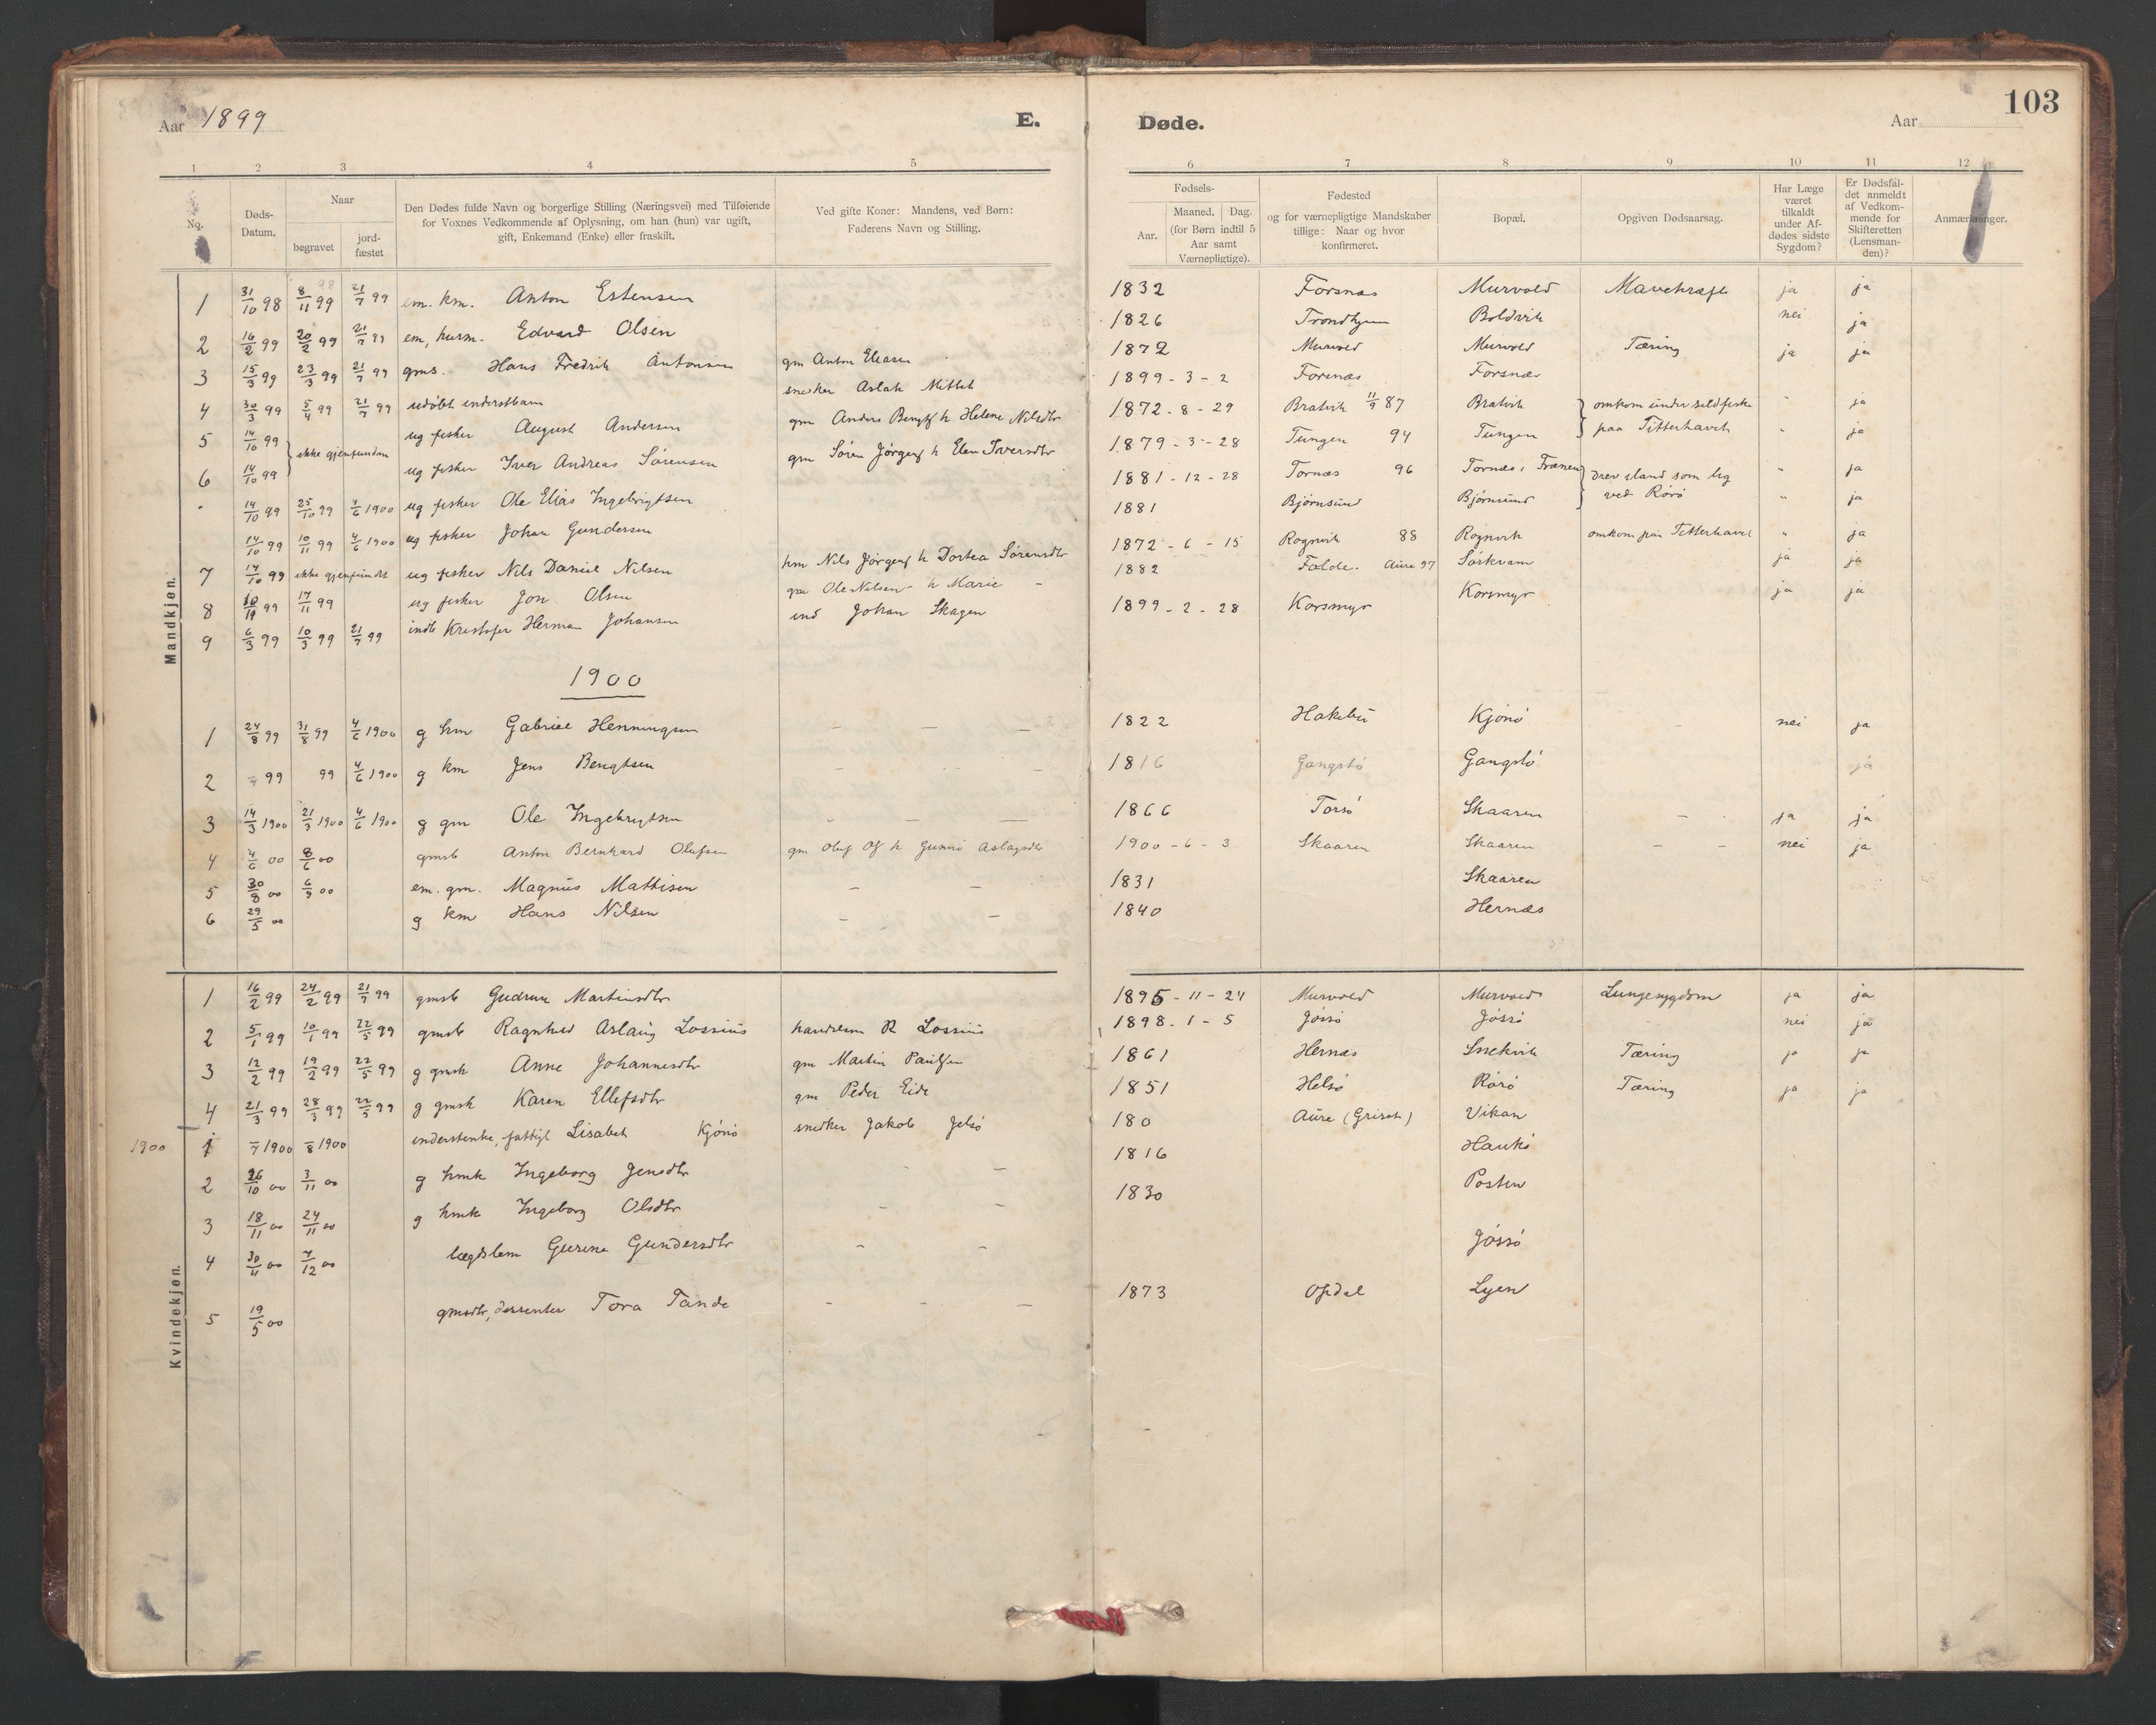 103
Aar 1899 E. Døde. Aar
1 2 3 4 5 6 7 8 9 10 11 12
No. Døds-Datum. Naar begravet jord-fæstet Den Dødes fulde Navn og borgerlige Stilling (Næringsvei) med Tilføiende for Voxnes Vedkommende af Oplysning, om han (hun) var ugift, gift, Enkemand (Enke) eller fraskilt. Ved gifte Koner: Mandens, ved Børn: Faderens Navn og Stilling. Fødsels- Aar. Maaned. Dag. (for Børn indtil 5 Aar samt Værnepligtige). Fødested og for værnepligtige Mandskaber tillige: Naar og hvor konfirmeret. Bopæl. Opgiven Dødsaarsag. Har Læge været tilkaldt under Afdødes sidste Sygdom? Er Dødsfaldet anmeldt af Vedkommende for Skifteretten (Lensmanden)? Anmærkninger.
Mandkjøn.
1 31/10 98 8/11 99 98 21/7 99 em. km. Anton Estensen 1832 Forsnæs Murvold ja ja
2 16/2 99 20/2 99 21/7 99 em, husm. Edvard Olsen 1826 Trondhjem Boldvik nei ja
3 15/3 99 23/3 99 21/7 99 gms. Hans Fredrik Antonsen gm Anton Eliasen 1872 Murvold Murvold Tæring ja ja
4 30/3 99 5/4 99 21/7 99 udøbt inderstbarn snedker Aslak Mittet 1899-3-2 Forsnæs Forsnæs
5 14/10 99 ikke gjenfunden ug fisker August Andersen gm Anders Bengtss h Helene Nilsdtr 1872-8-29 Bratvik 11/9 87 Bratvik omkom under sildfiske " ja
6 14/10 99 ug fisker Iver Andreas Sørensen gm Søren Jørgens h Elen Iversdtr 1879-3-28 Tungen 94 Tungen paa Titterhavet " ja
" 14/10 99 25/10 99 4/6 1900 ug fisker Ole Elias Ingebrigtsen 1881-12-28 Tornæs 96 Tornæs i Frænen drev iland som lig " ja
14/10 99 10/11 99 4/6 1900 ug fisker Johan Gundersen 1881 Bjørnsund Bjørnsund ved Rørø " ja
7 14/10 99 ikke gjenfundet ug fisker Nils Daniel Nilsen hm Nils Jørgens h Dortea Sørensdtr 1872-6-15 Rognvik 88 Rognvik omkom paa Titterhavet " ja
8 10/11 99 17/11 99 ug fisker Jon Olsen gm Ole Nilsen h Marie 1882 Folde. Aure 97 Sørkvam ja ja
9 6/3 99 10/3 99 21/7 99 indb Kristofer Herman Johansen ind Johan Skagen 1899-2-28 Korsmyr Korsmyr ja ja
1900
1 24/8 99 31/8 99 4/6 1900 g hm Gabriel Henningsen – – – 1822 Hakebu Kjønø – nei ja
2 99 99 4/6 1900 g km Jens Bengtsen – – – 1816 Gangstø Gangstø ja
3 14/3 1900 21/3 1900 4/6 1900 g gm Ole Ingebrigtsen – – – 1866 Torsø Skaaren – ja ja
4 4/6 00 8/6 00 gmsb Anton Bernhard Olufsen gm Oluf h Gunni Aslagsdtr 1900-6-3 Skaaren Skaaren – – nei ja
5 30/8 00 6/9 00 em. gm. Magnus Mattisen – – 1831 Skaaren
6 29/5 00 g km Hans Nilsen – – 1840 Hernæs
Kvindekjøn.
1 16/2 99 24/2 99 21/7 99 gmsb Gudrun Martinsdtr 1895-11-24 Murvold Murvold Lungesygdom ja ja
2 5/1 99 10/1 99 22/5 99 gmsb Ragnhild Aslaug Lossius handelsm R Lossius 1898-1-5 Jøssø Jøssø nei ja
3 12/2 99 19/2 99 22/5 99 g gmsk Anne Johannesdtr gm Martin Paulsen 1861 Hernæs Snekvik Tæring ja ja
4 21/3 99 28/3 99 22/5 99 g gmsk Karen Ellefsdtr gm Peder Eide 1851 Helsø Rørø Tæring ja ja
1900 1 /7 1900 /8 1900 inderstenke, fattigl Lisabet Kjønø snedker Jakob 180 Aure (Griset) Vikan
2 26/10 00 3/11 00 g hmk Ingeborg Jensdtr – 1816 Haukø
3 18/11 00 24/11 00 g hmk Ingeborg Olsdtr – – 1830 Posten
4 30/11 00 7/12 00 lægdslem Gurine Gundersdtr – – Jøssø
5 19/5 00 gmsdtr, dissenter Tora Tande – – – 1873 Opdal Lyen